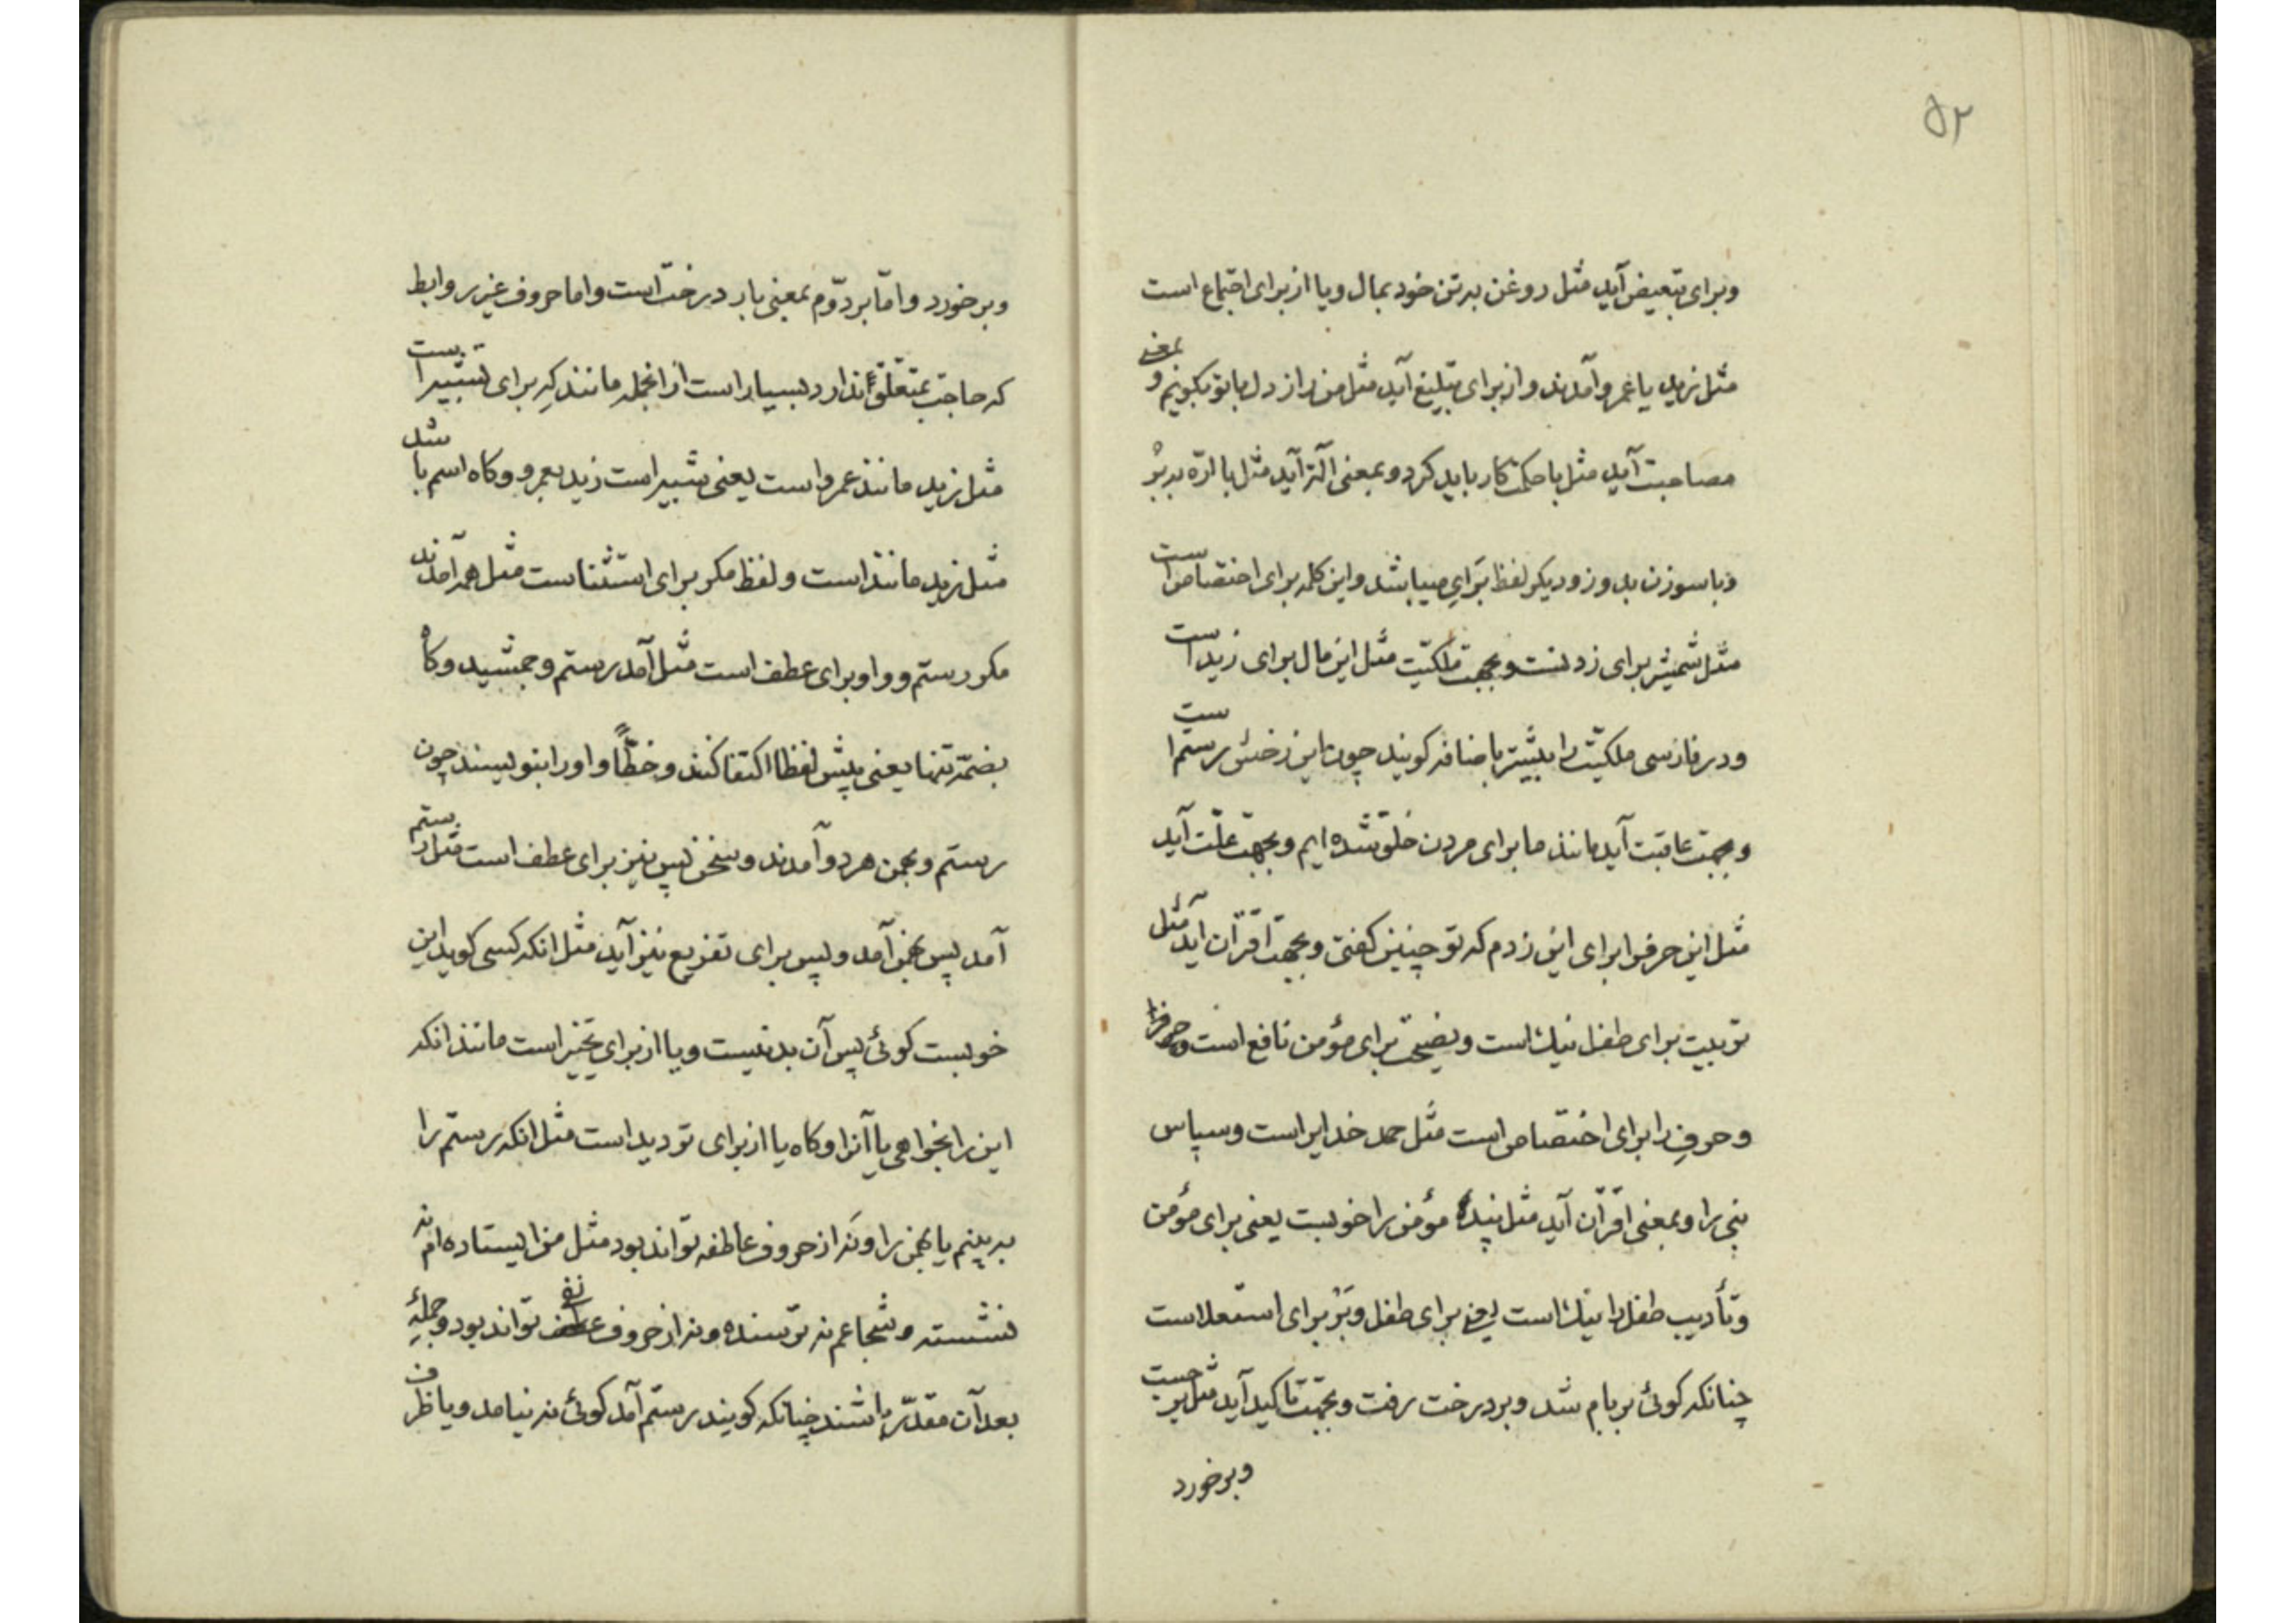 ۵۲
وبرای تبعیض آید مثل روغن بر تن خود بمال ویا از برای اجتماع است
مثل زید یا عمرو آمدند واز برای تبلیغ آید مثل من راز دل با تو بکویم و بمعنی
مصاحبت آید مثل با حکمت کار باید کرد وبمعنی آلة آید مثل با ارّه ببُر
وبا سوزن بدوز ودیکر لفظ بَرَایِ میباشد واین کلمه برای اختصاص است
مثل شمیشر برای زدنست وبجهت ملکیّت مثل این مال برای زید است
ودر فارسی ملکیّت را بیشتر باضافه کویند چون این رخشِ رستم است
وبجهت عاقبت آید مانند ما برای مردن خلق شده ایم وبجهت علّت آید
مثل این حرف را برای این زدم که تو چنین کفتی وبجهت اقتران آید مثل
تربیت برای طفل نیک است ونصیحت برای مؤمن نافع است
وحرفِ را برای اختصاص است مثل حمد خدایرا است وسپاس
نبی را وبمعنی اقتران آید مثل پند مؤمن را خوبست یعنی برای مؤمن
وتأدیب طفل را نیک است یعنی برای طفل وبَرْ برای استعلاست
چنانکه کوئی بر بام شد وبر درخت رفت وبجهت تاکید آید مثل برجست
وبرخورد
وبرخورد وامّا بر دوّم بمعنی بار درخت است واما حروف غیر روابط
که حاجت بمتعلّق ندارد بسیار است از انجمله مانندکِه برای تشبیه است
مثل زید مانند عمرو است یعنی شبیه است زید بعمرو وکاه اسم باشد
مثل زید مانند است ولفظ مکر برای استثناست مثل همه آمدند
مکر رستم وواو برای عطف است مثل آمد رستم وجمشید وکاه
بضمّه تنها یعنی پیش لفظا اکتفا کنند وخطّاً واو را بنویسند چون
رستم وبهمن هر دو آمدند وسخن پس نیز برای عطف است مثل رستم
آمد پس بهمن آمد وپس برای تفریع نیز آید مثل انکه کسی کوید این
خوبست کوئی پس آن بد نیست ویا از برای تخییر است مانند انکه
این را بخواهی یا آنرا وکاه یا از برای تردید است مثل انکه رستم را
به بینم یا بهمن را ونَه از حروف عاطفه تواند بود مثل من ایستاده ام نه
نشسته وشجاعم نه ترسنده ونه از حروف نفی تواند بود وجملهٔ
بعد آن مقدّر باشند چنانکه کویند رستم آمد کوئی نه نیامد ویا ظرف